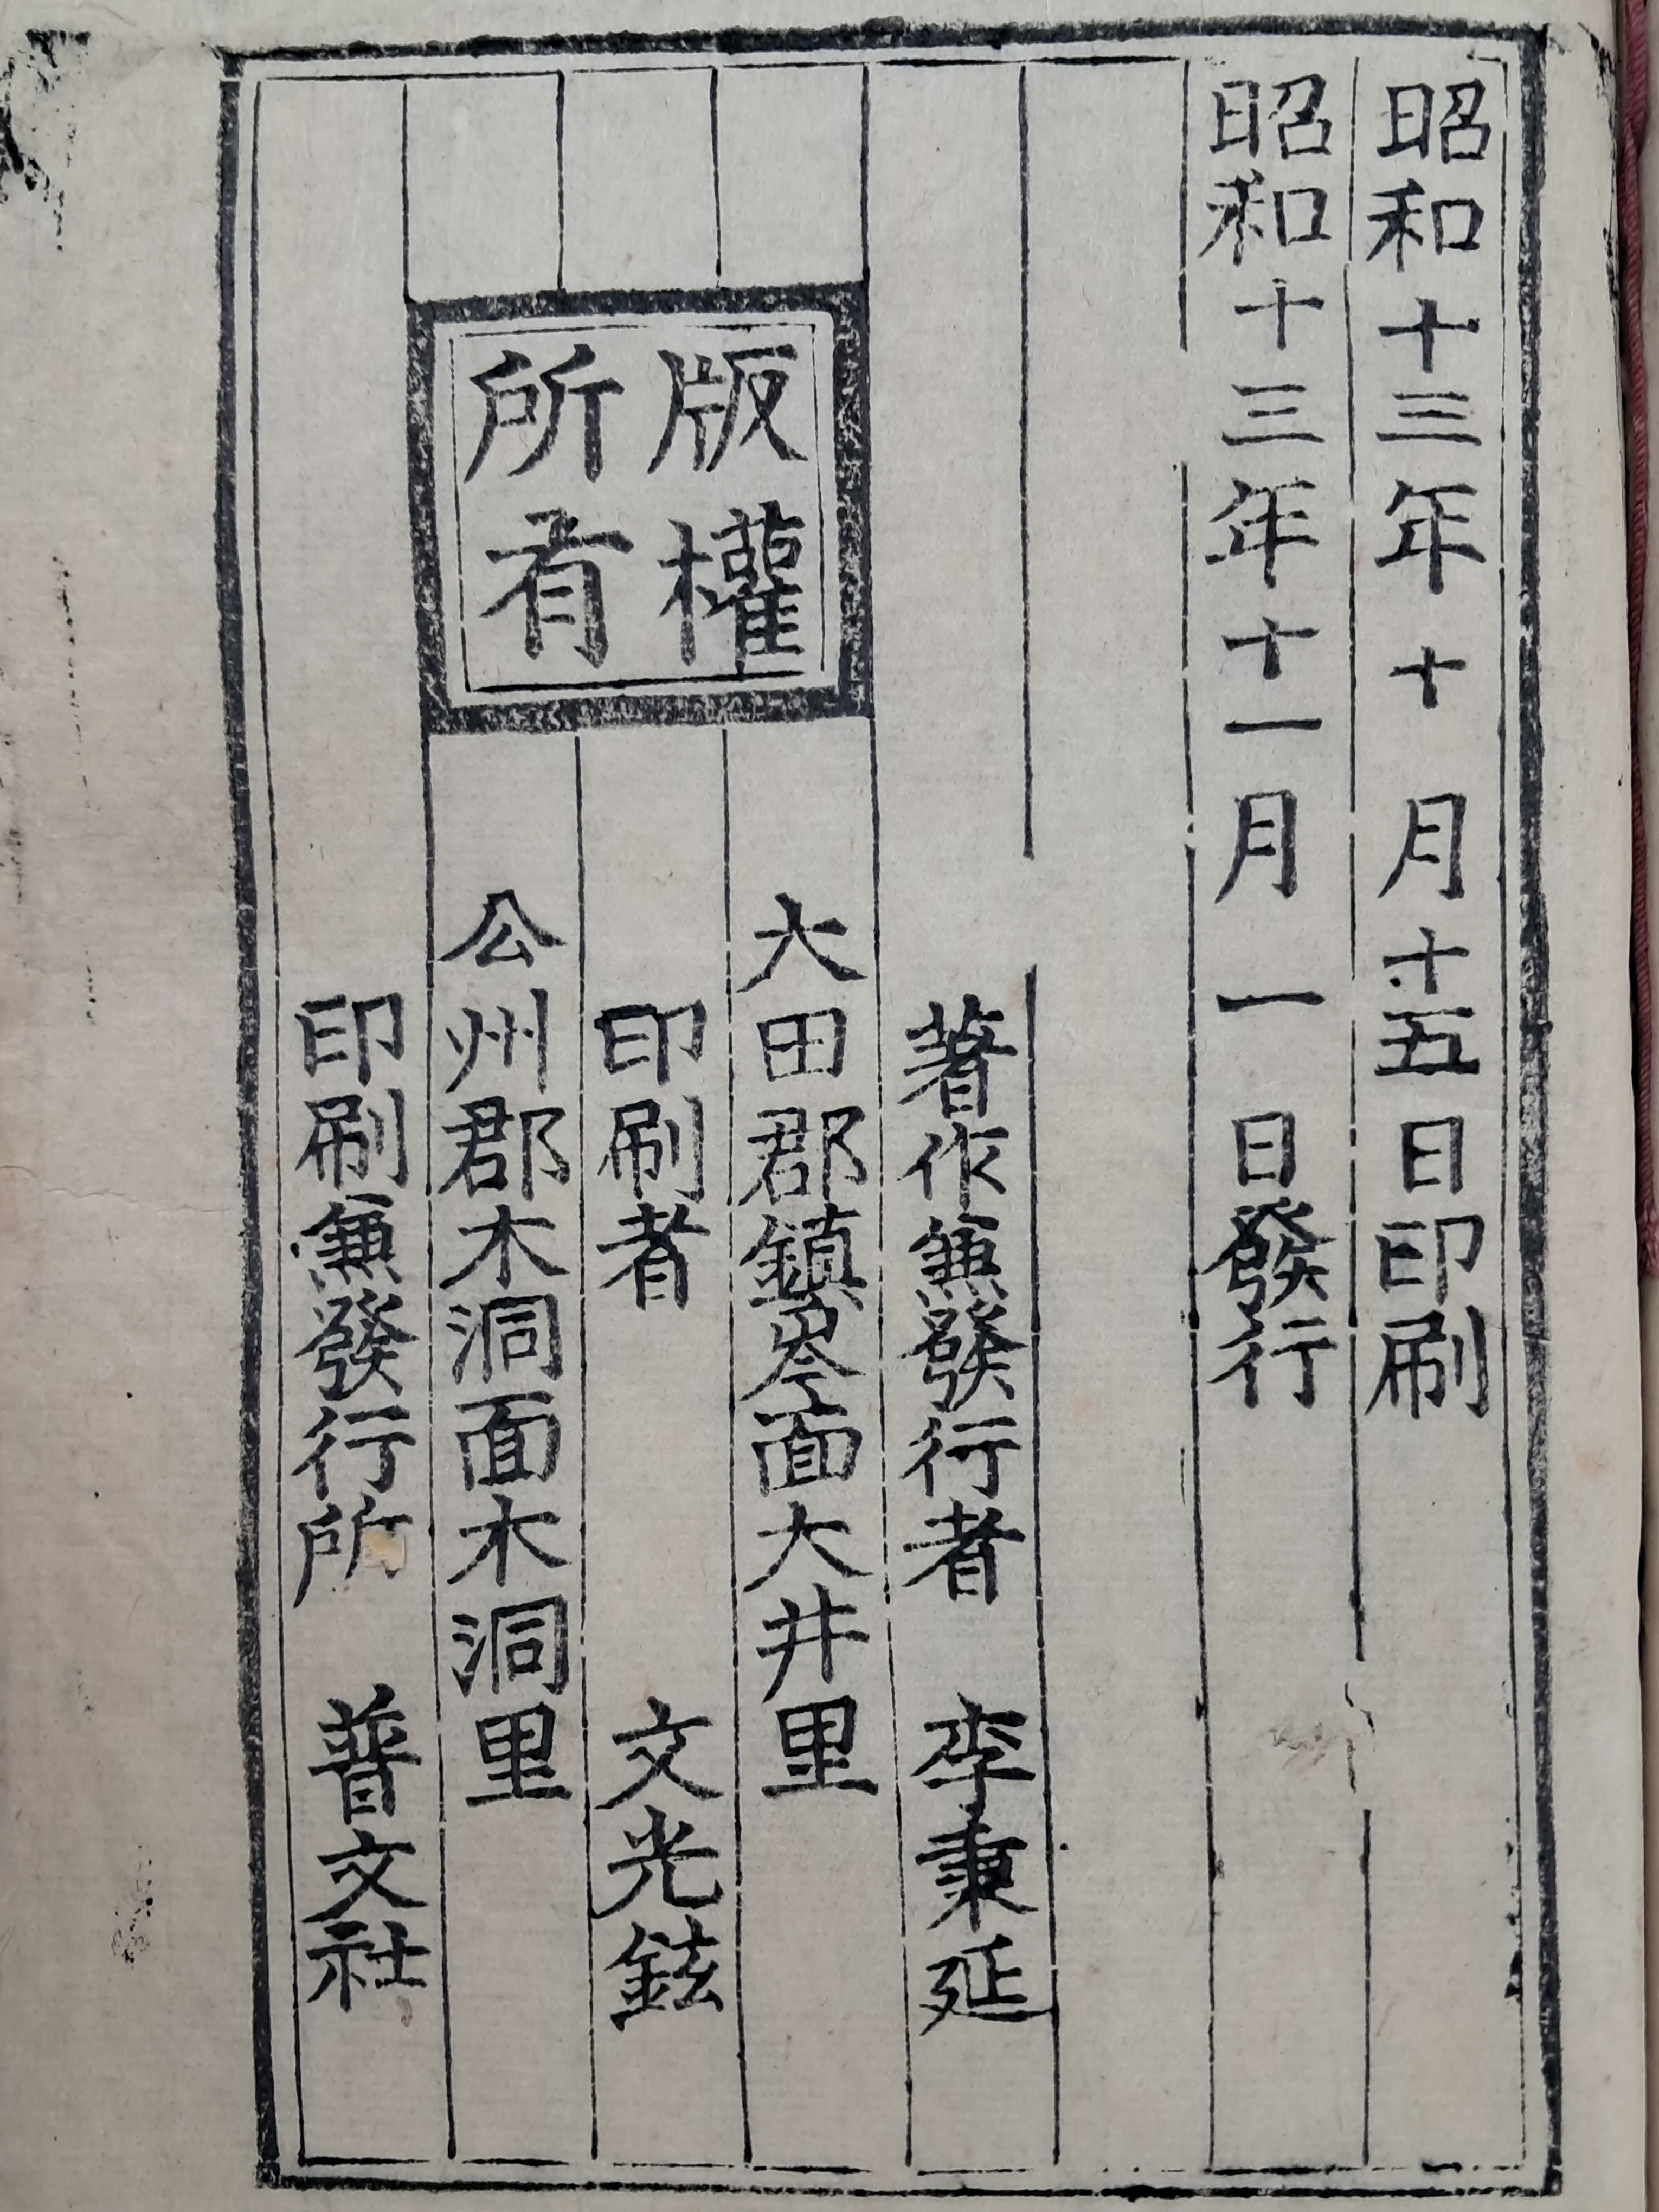 昭和十三年十月十五日印刷
昭和十三年十一月一日發行
著作兼發行者 李秉延
版權
所有
大田郡鎭岑面大井里
印刷者 文光鉉
公州郡木洞面木洞里
印刷兼發行所 普文社